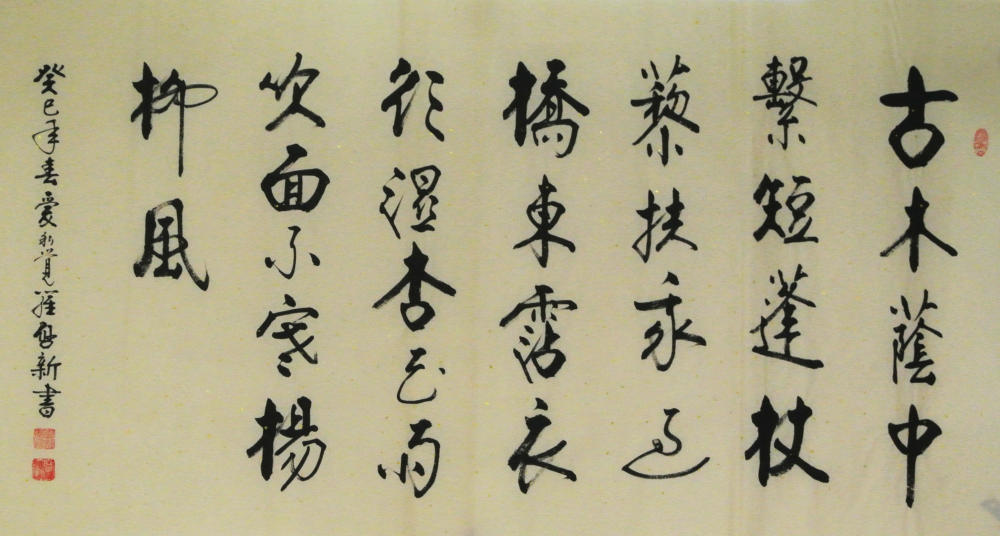 古木蔭中
繫短蓬杖
藜扶我過
橋東霑衣
欲湿杏花雨
吹面不寒楊
柳風
癸巳年春愛新覺羅啟新書